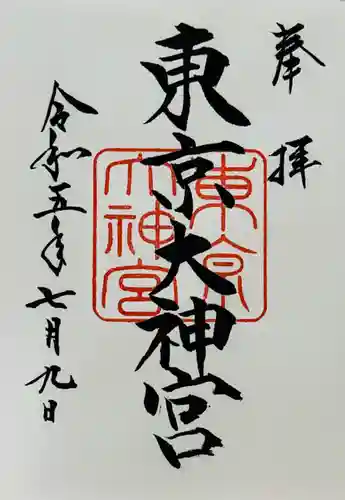 奉拝
東京大神宮
東京
大神宮
令和五年七月九日